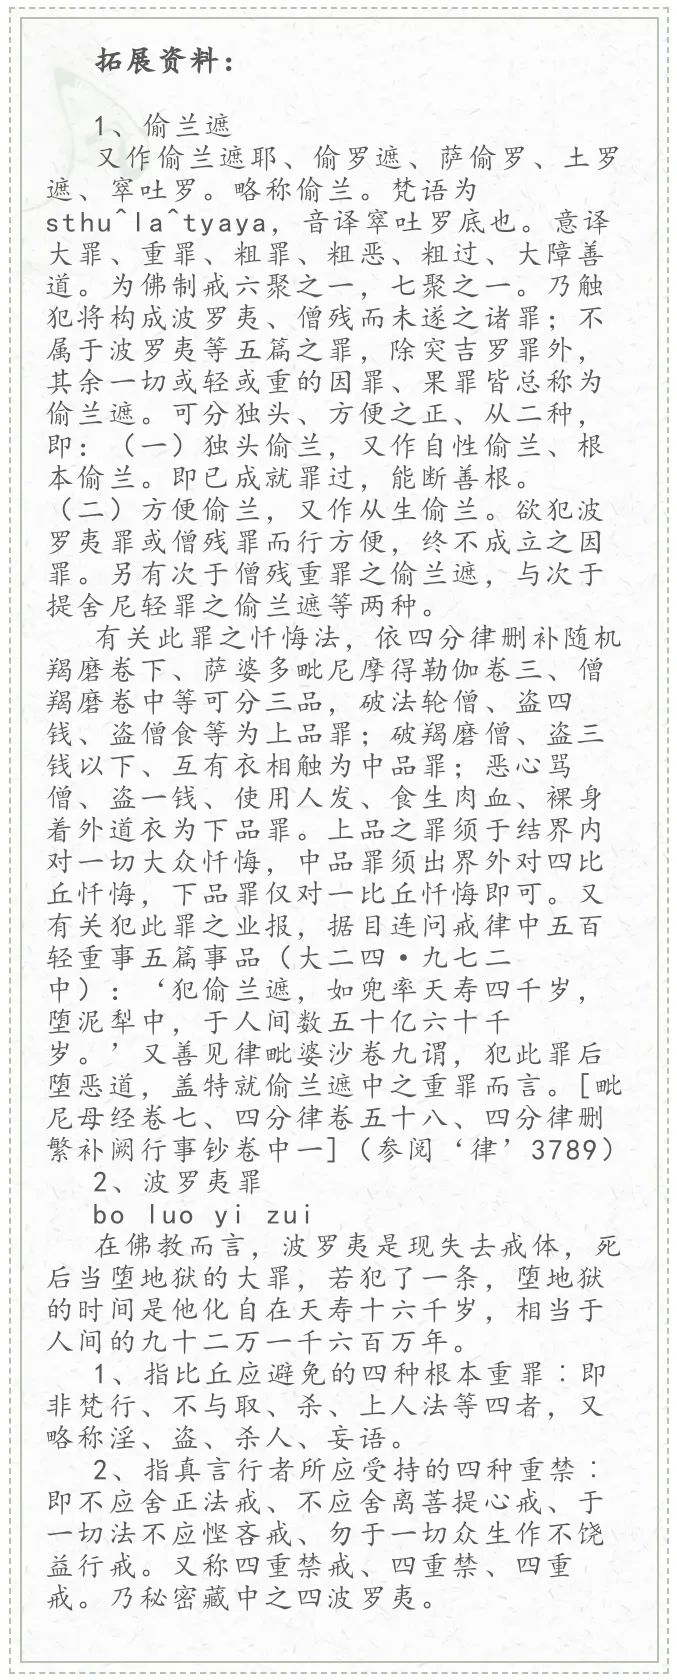 拓展资料：
1、偷兰遮
又作偷兰遮耶、偷罗遮、萨偷罗、土罗
遮、窣吐罗。略称偷兰。梵语为
sthu^la^tyaya，音译窣吐罗底也。意译
大罪、重罪、粗罪、粗恶、粗过、大障善
道。为佛制戒六聚之一，七聚之一。乃触
犯将构成波罗夷、僧残而未遂之诸罪；不
属于波罗夷等五篇之罪，除突吉罗罪外，
其余一切或轻或重的因罪、果罪皆总称为
偷兰遮。可分独头、方便之正、从二种，
即：（一）独头偷兰，又作自性偷兰、根
本偷兰。即已成就罪过，能断善根。
（二）方便偷兰，又作从生偷兰。欲犯波
罗夷罪或僧残罪而行方便，终不成立之因
罪。另有次于僧残重罪之偷兰遮，与次于
提舍尼轻罪之偷兰遮等两种。
有关此罪之忏悔法，依四分律删补随机
羯磨卷下、萨婆多毗尼摩得勒伽卷三、僧
羯磨卷中等可分三品，破法轮僧、盗四
钱、盗僧食等为上品罪；破羯磨僧、盗三
钱以下、互有衣相触为中品罪；恶心骂
僧、盗一钱、使用人发、食生肉血、裸身
着外道衣为下品罪。上品之罪须于结界内
对一切大众忏悔，中品罪须出界外对四比
丘忏悔，下品罪仅对一比丘忏悔即可。又
有关犯此罪之业报，据目连问戒律中五百
轻重事五篇事品（大二四·九七二
中）：‘犯偷兰遮，如兜率天寿四千岁，
堕泥犁中，于人间数五十亿六十千
岁。’又善见律毗婆沙卷九谓，犯此罪后
堕恶道，盖特就偷兰遮中之重罪而言。[毗
尼母经卷七、四分律卷五十八、四分律删
繁补阙行事钞卷中一]（参阅‘律’3789）
2、波罗夷罪
bo luo yi zui
在佛教而言，波罗夷是现失去戒体，死
后当堕地狱的大罪，若犯了一条，堕地狱
的时间是他化自在天寿十六千岁，相当于
人间的九十二万一千六百万年。
1、指比丘应避免的四种根本重罪：即
非梵行、不与取、杀、上人法等四者，又
略称淫、盗、杀人、妄语。
2、指真言行者所应受持的四种重禁：
即不应舍正法戒、不应舍离菩提心戒、于
一切法不应悭吝戒、勿于一切众生作不饶
益行戒。又称四重禁戒、四重禁、四重
戒。乃秘密藏中之四波罗夷。